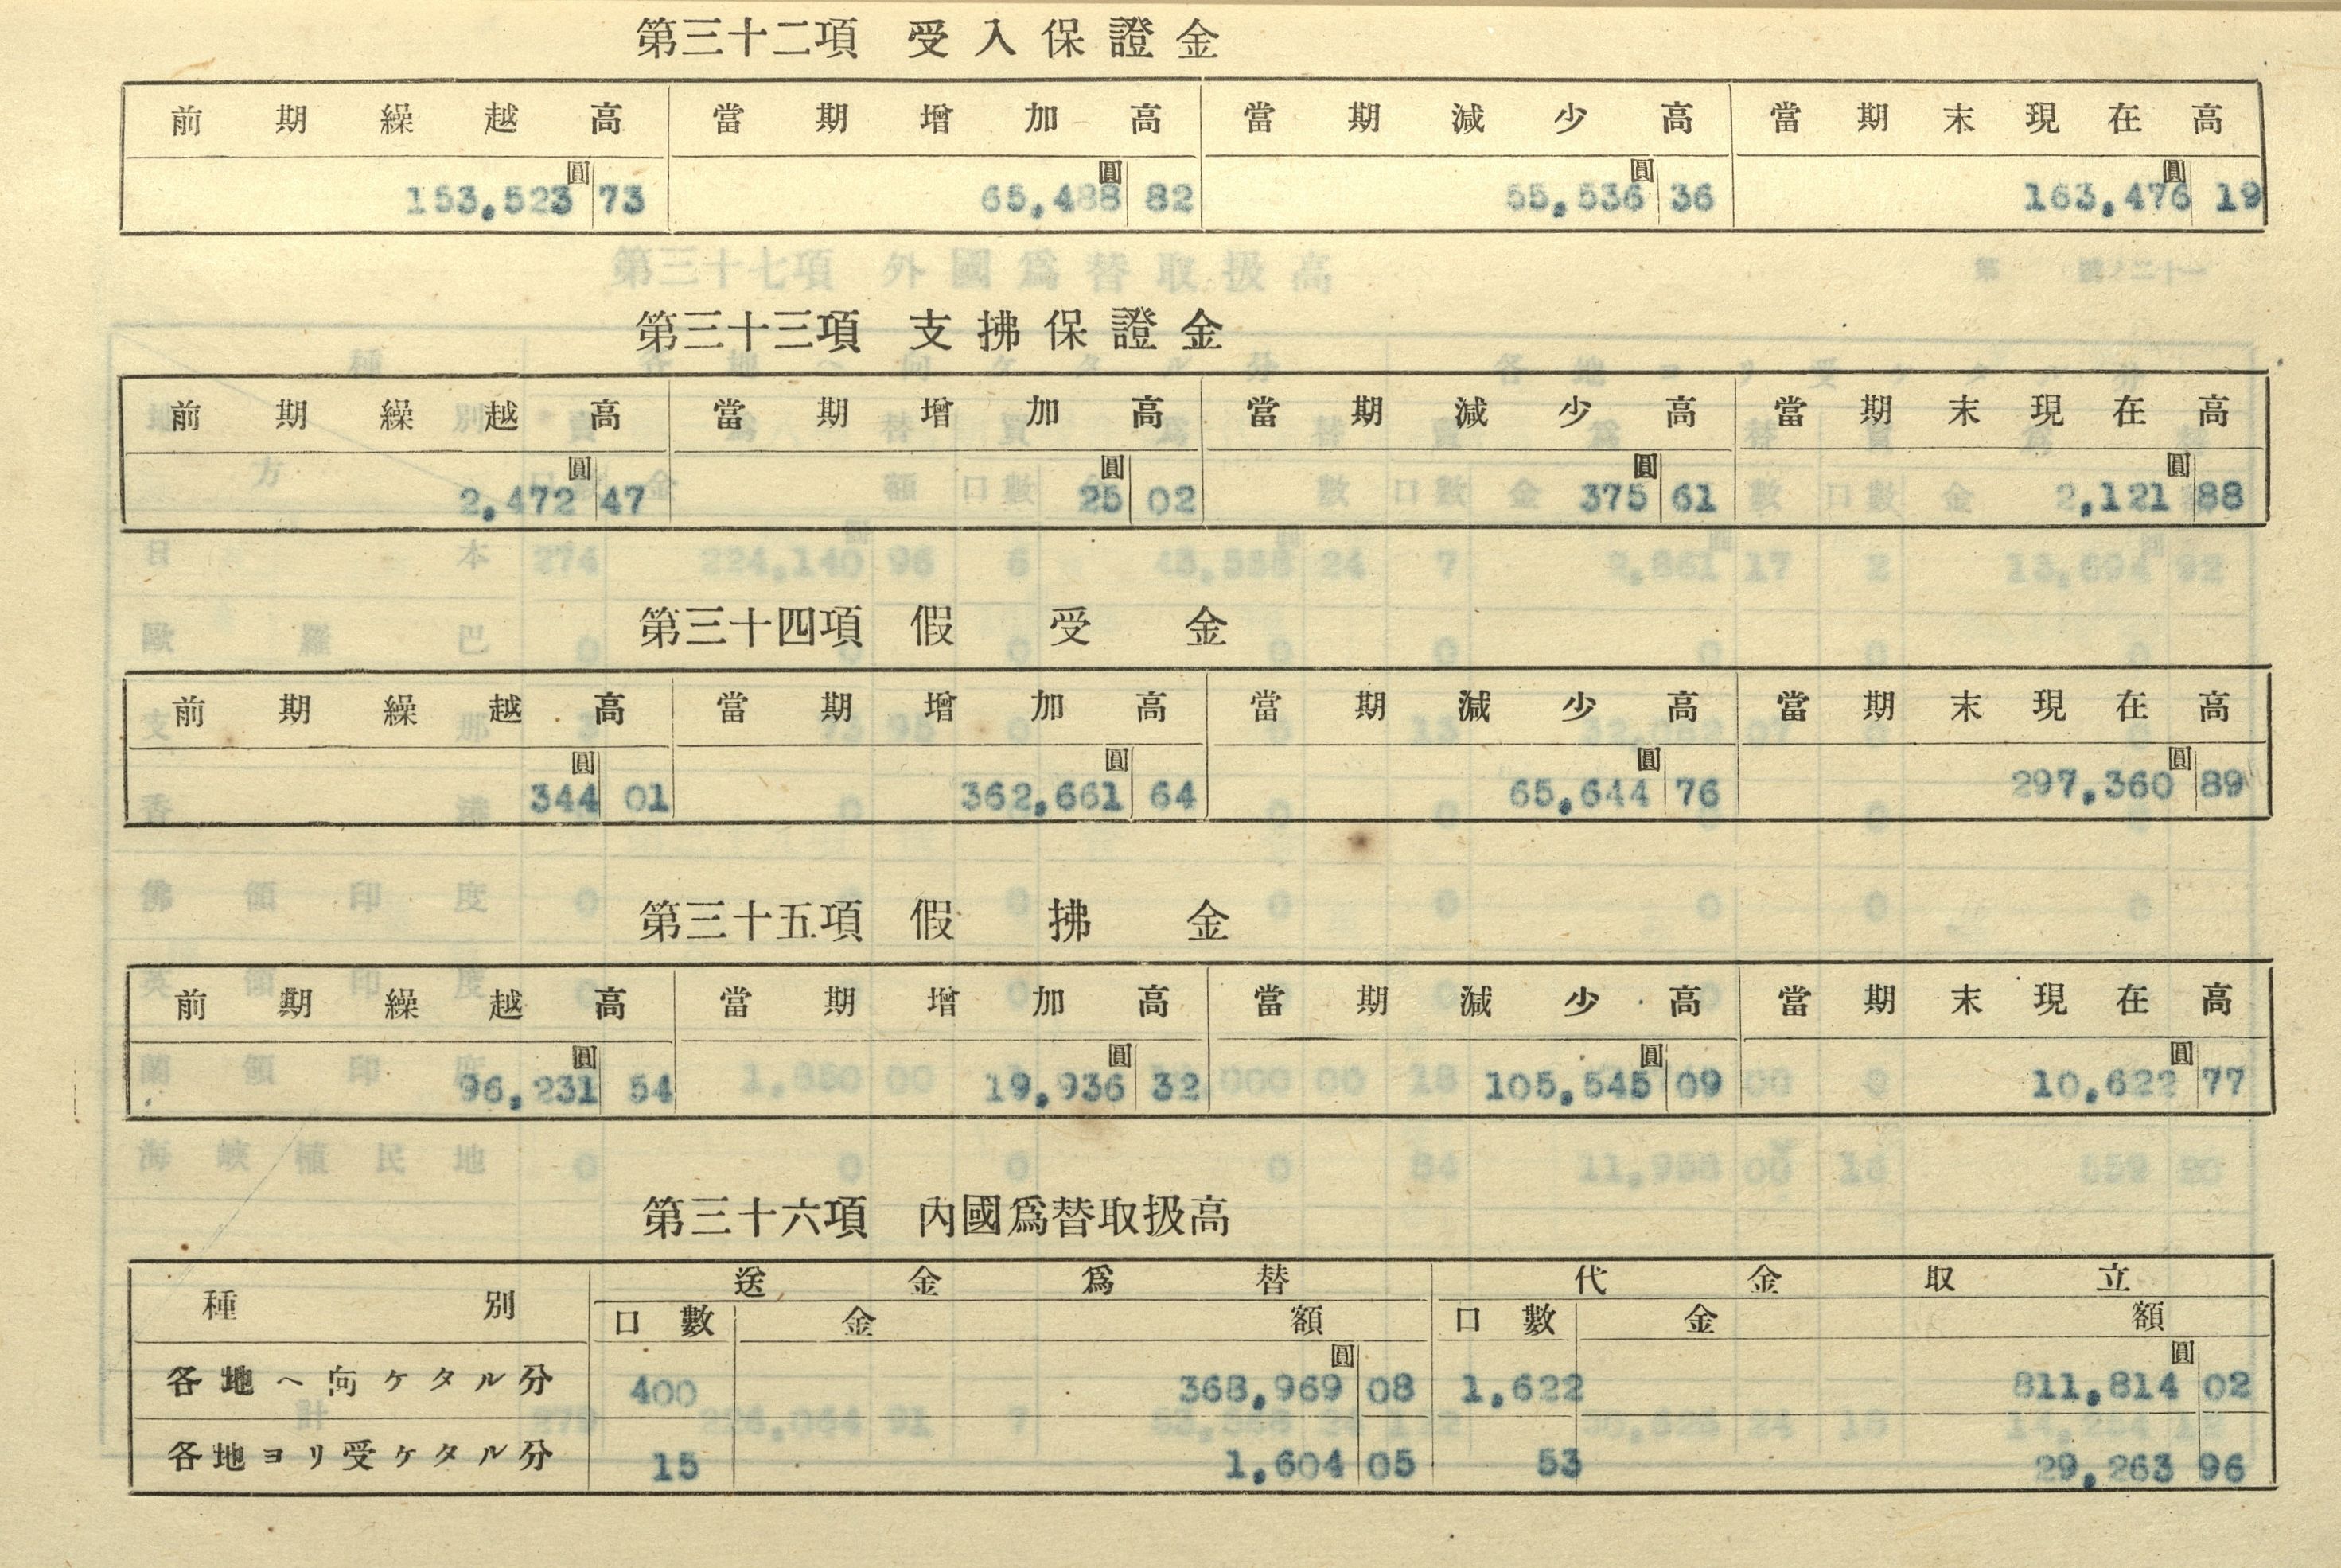 第三十二項 受入保證金
前期繰越高 當期增加高 當期減少高 當期末現在高
圓 圓 圓 圓
153,523 73 65,488 82 55,536 36 163,476 19
第三十三項 支拂保證金
前期繰越高 當期增加高 當期減少高 當期末現在高
圓 圓 圓 圓
2,472 47 25 02 375 61 2,121 88
第三十四項 假受金
前期繰越高 當期增加高 當期減少高 當期末現在高
圓 圓 圓 圓
344 01 362,661 64 65,644 76 297,360 89
第三十五項 假拂金
前期繰越高 當期增加高 當期減少高 當期末現在高
圓 圓 圓 圓
96,231 54 19,936 32 105,545 09 10,622 77
第三十六項 內國爲替取扱高
種別 送金爲替 代金取立
口數 金額 口數 金額
圓 圓
各地ヘ向ケタル分 400 368,969 08 1,622 811,814 02
各地ヨリ受ケタル分 15 1,604 05 53 29,263 96